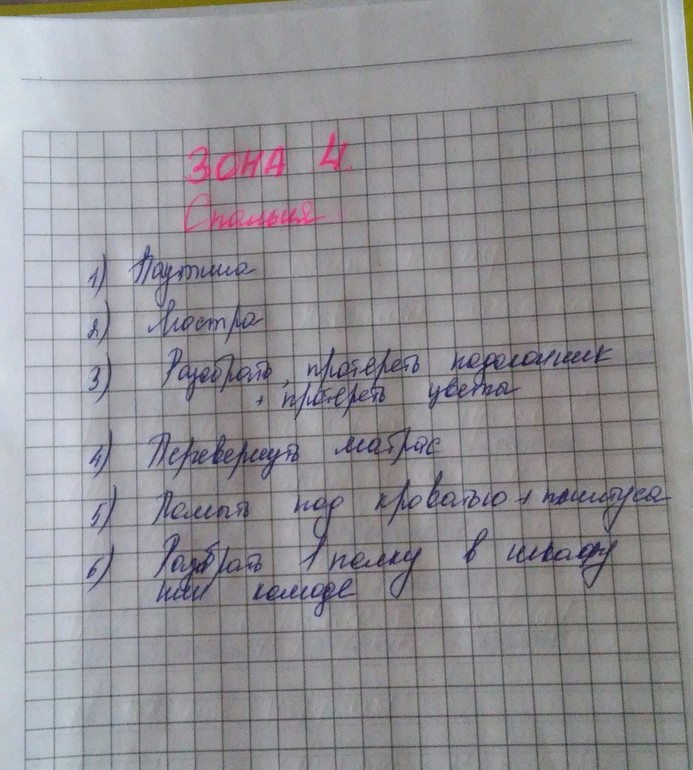 ЗОНА 4.
Спальня
1) Паутина
2) Люстра
3) Разобрать, протереть подоконник
+ протереть цветы
4) Перевернуть матрас
5) Помыть под кроватью + плинтуса
6) Разобрать 1 полку в шкафу
или комоде